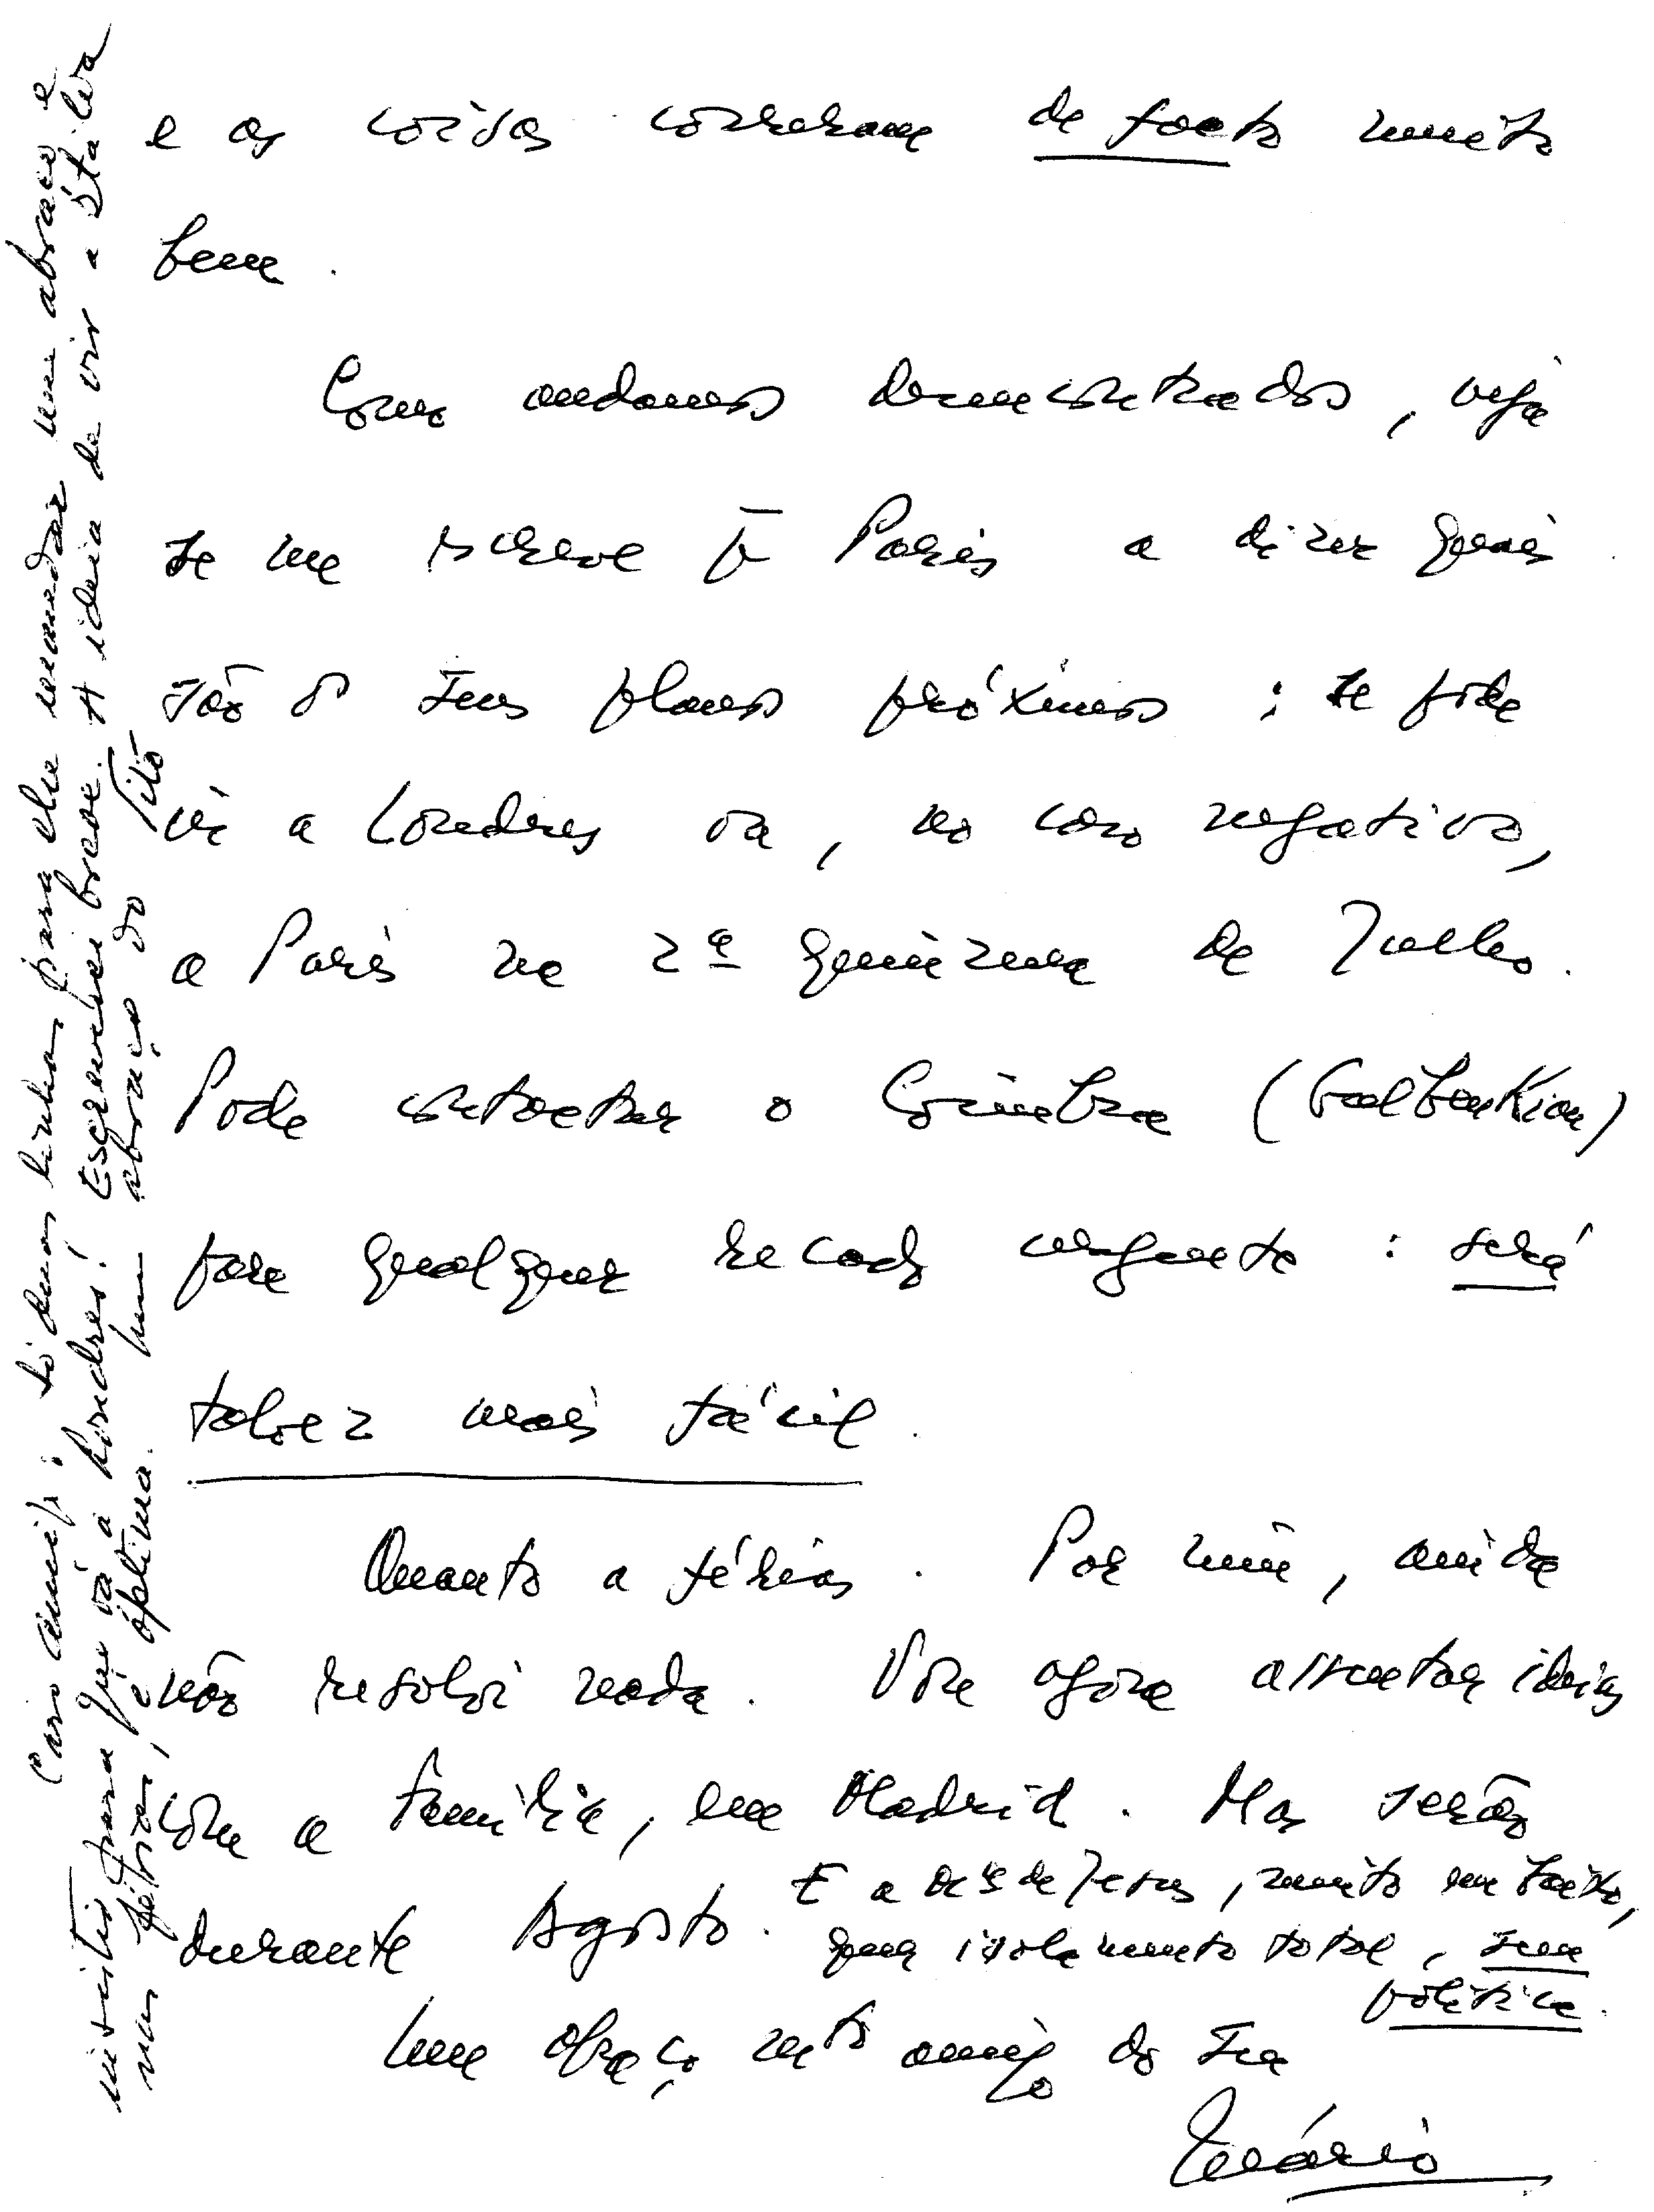 e as coisas correram de facto muito
bem.
Como andamos desencontrados, veja
se me escreve p Paris a dizer quais
são os seus planos próximos: se pode
vir a Londres ou, no caso negativo,
a Paris na 2ª quinzena de Julho.
Pode contactar o Coimbra (Gulbenkian)
para qualquer recado urgente: será
talvez mais fácil.
Quanto a férias. Por mim, ainda
não resolvi nada. Vou agora assentar ideias
com a família, em Madrid. Mas serão
durante Agosto. E a de Jesus, muito em baixo,
quer isolamento total, sem
política.
Um abraço mto amigo do seu
Mário
Caro amigo: só duas linhas para lhe mandar um abraço e
insistir para que vá a Londres! Escreverei breve. A ideia de vir a Itália
nas férias, é óptima. Um abraço do Tito